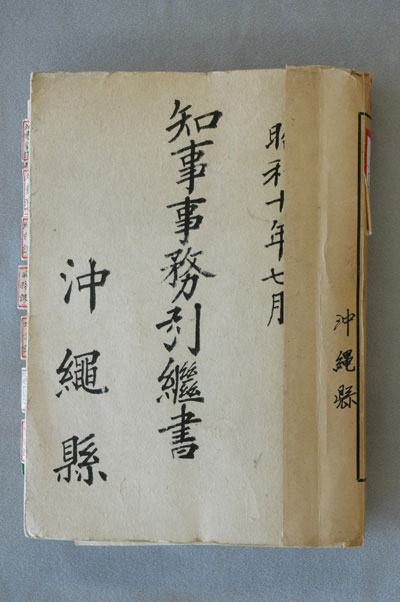 沖繩縣
昭和十年七月
知事事務引繼書
沖繩縣